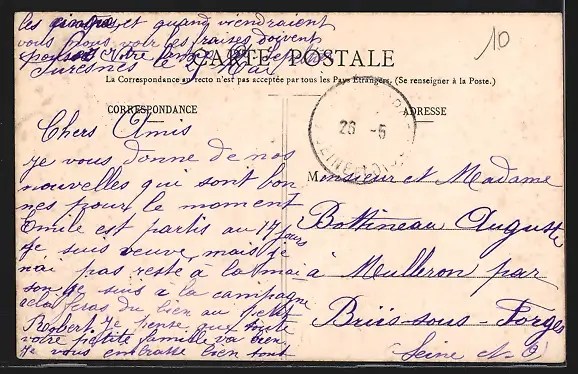 les et quand viendraient
vous nous voir les fraises doivent
votre amie
Suresnes le 29 Mai
CARTE POSTALE
10
La Correspondance au recto n'est pas acceptée par tous les Pays Etrangers. (Se renseigner à la Poste.)
CORRESPONDANCE
ADRESSE
26 -5
Chers Amis
je vous donne de nos
nouvelles qui sont bon
nes pour le moment
Emile est partis au 17 jours
je suis veuve mais je
n'ai pas resté à la mai
son je suis à la campagne
cela feras du bien au petit
Robert. Je pense que toute
votre petite famille va bien.
Je vous embrasse bien tout
Monsieur et Madame
Bottineau Auguste
à Mulleron par
Briis-sous-Forges
Seine et O